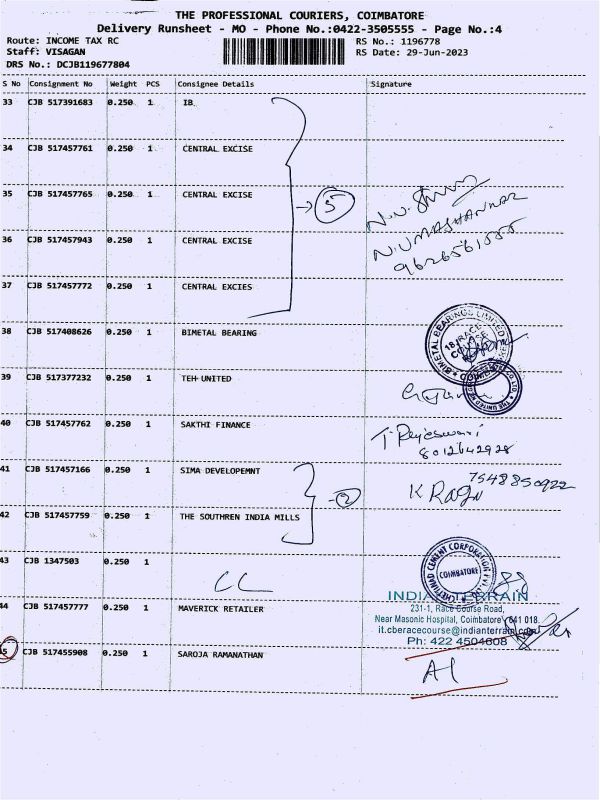 THE PROFESSIONAL COURIERS, COIMBATORE
Delivery Runsheet - MO - Phone No.:0422-3505555 - Page No.:4
Route: INCOME TAX RC RS No.: 1196778
Staff: VISAGAN RS Date: 29-Jun-2023
DRS No.: DCJB119677804
S No Consignment No Weight PCS Consignee Details Signature
33 CJB 517391683 0.250 1 IB
34 CJB 517457761 0.250 1 CENTRAL EXCISE
35 CJB 517457765 0.250 1 CENTRAL EXCISE
5
N.UMASHANKAR
36 CJB 517457943 0.250 1 CENTRAL EXCISE
37 CJB 517457772 0.250 1 CENTRAL EXCIES
38 CJB 517408626 0.250 1 BIMETAL BEARING
BIMETAL BEARINGS LIMITED
39 CJB 517377232 0.250 1 TEH UNITED
40 CJB 517457762 0.250 1 SAKTHI FINANCE
T. Rajeswari
8012642928
41 CJB 517457166 0.250 1 SIMA DEVELOPEMNT
7548850922
K RAGU
2
42 CJB 517457759 0.250 1 THE SOUTHREN INDIA MILLS
43 CJB 1347503 0.250 1
CEMENT CORPORATION
COIMBATORE
CC
INDIAN TERRAIN
44 CJB 517457777 0.250 1 MAVERICK RETAILER
231-1, Race Course Road,
Near Masonic Hospital, Coimbatore 641 018.
it.cberacecourse@indianterrain.com
Ph: 422 4504608
45 CJB 517455908 0.250 1 SAROJA RAMANATHAN
A1